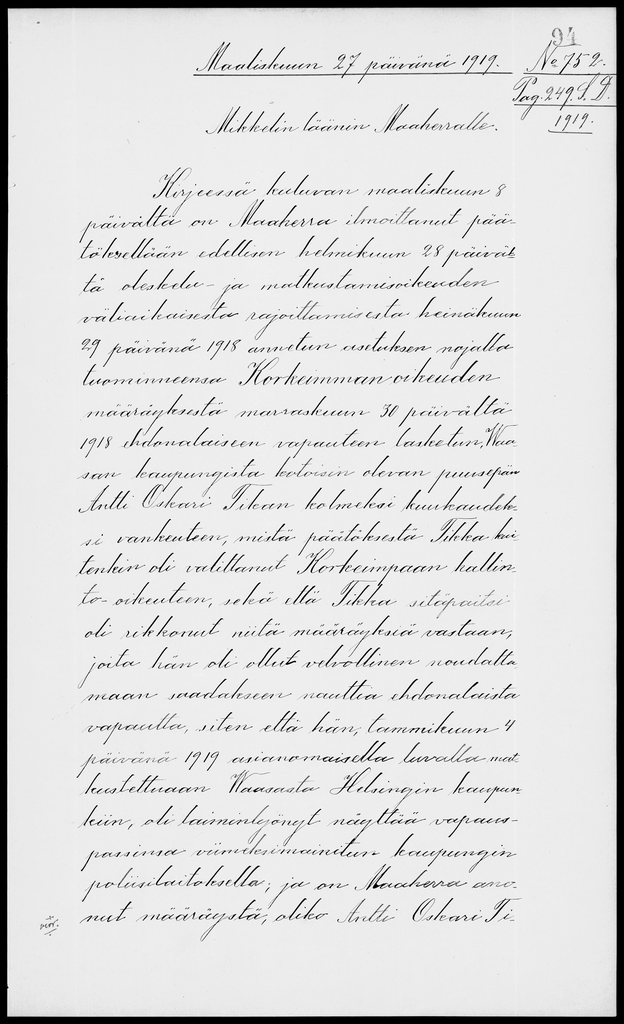 94
Maaliskuun 27 päivänä 1919.
No 752.
Pag. 249. S. D.
1919.
Mikkelin läänin Maaherralle.
Kirjeessä kuluvan maaliskuun 8
päivältä on Maaherra ilmoittanut pää-
töksellään edellisen helmikuun 28 päiväl-
tä oleskelu- ja matkustamisoikeuden
väliaikaisesta rajoittamisesta heinäkuun
29 päivänä 1918 annetun asetuksen nojalla
tuominneensa Korkeimman oikeuden
määräyksestä marraskuun 30 päivältä
1918 ehdonalaiseen vapauteen lasketun, Waa-
san kaupungista kotoisin olevan puusepän
Antti Oskari Tikan kolmeksi kuukaudek-
si vankeuteen, mistä päätöksestä Tikka kui-
tenkin oli valittanut Korkeimpaan hallin-
to-oikeuteen, sekä että Tikka sitäpaitsi
oli rikkonut niitä määräyksiä vastaan,
joita hän oli ollut velvollinen noudatta-
maan saadakseen nauttia ehdonalaista
vapautta, siten että hän, tammikuun 4
päivänä 1919 asianomaisella luvalla mat-
kustettuaan Waasasta Helsingin kaupun-
kiin, oli laiminlyönyt näyttää vapaus-
passinsa viimeksimainitun kaupungin
poliisilaitoksella; ja on Maaherra ano-
nut määräystä, oliko Antti Oskari Ti-